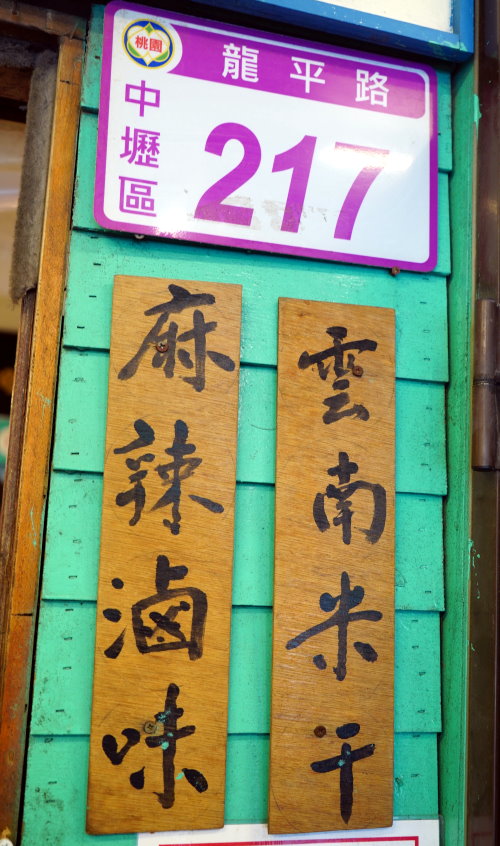 桃園
龍平路
中壢區
217
雲南米干
麻辣滷味